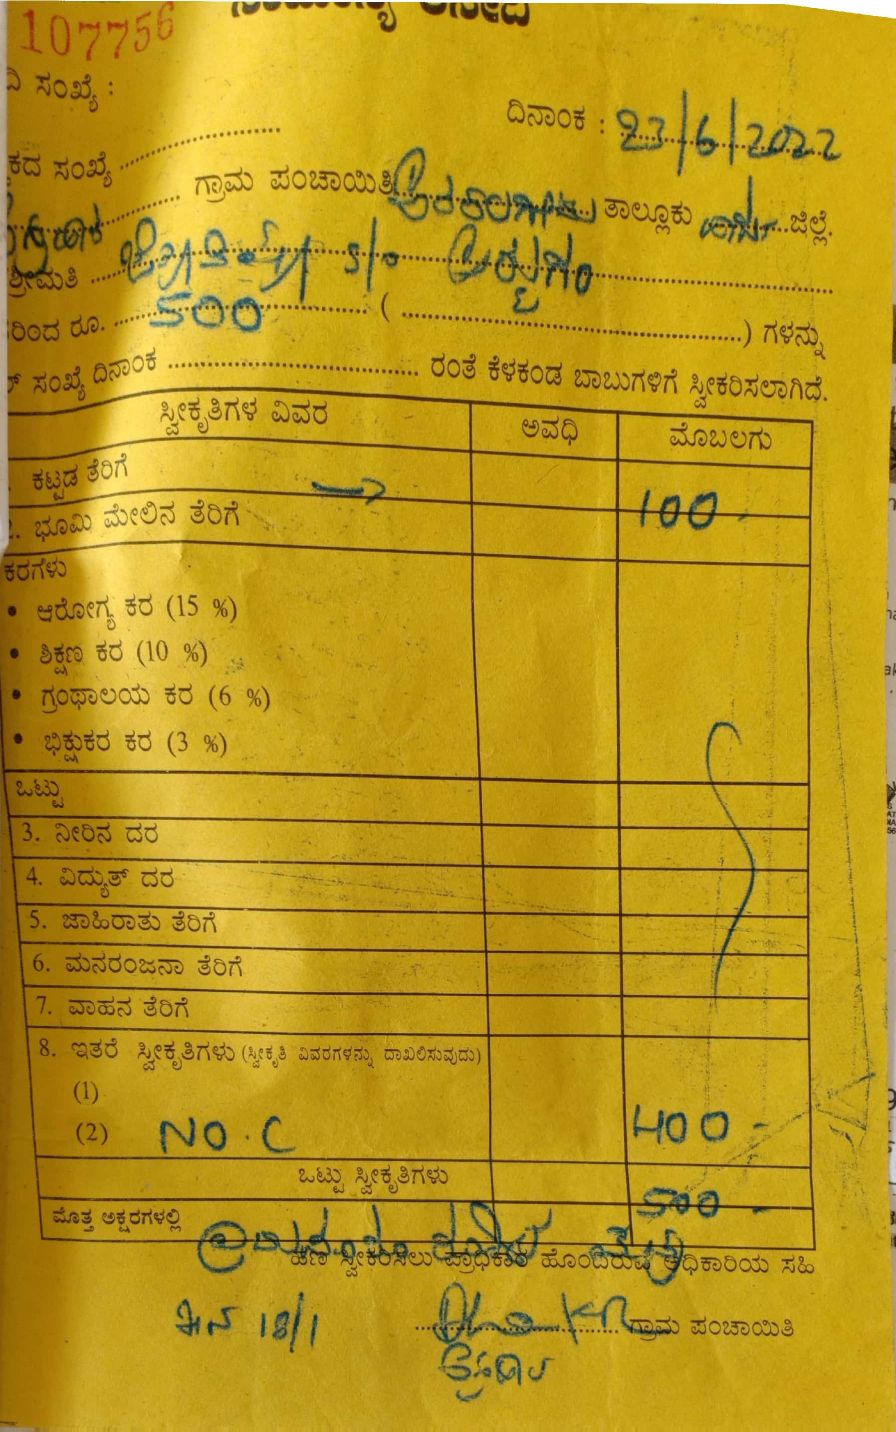 107756
ಸಂಖ್ಯೆ :
ದಿನಾಂಕ : 23/6/2022
ಸಂಖ್ಯೆ
ಗ್ರಾಮ ಪಂಚಾಯಿತಿ ತಾಲ್ಲೂಕು ಜಿಲ್ಲೆ.
ಶ್ರೀಮತಿ s/o
ರೂ. 500 ( ) ಗಳನ್ನು
ಸಂಖ್ಯೆ ದಿನಾಂಕ ರಂತೆ ಕೆಳಕಂಡ ಬಾಬುಗಳಿಗೆ ಸ್ವೀಕರಿಸಲಾಗಿದೆ.
ಸ್ವೀಕೃತಿಗಳ ವಿವರ ಅವಧಿ ಮೊಬಲಗು
ಕಟ್ಟಡ ತೆರಿಗೆ
ಭೂಮಿ ಮೇಲಿನ ತೆರಿಗೆ 100 -
ಕರಗಳು
• ಆರೋಗ್ಯ ಕರ (15 %)
• ಶಿಕ್ಷಣ ಕರ (10 %)
• ಗ್ರಂಥಾಲಯ ಕರ (6 %)
• ಭಿಕ್ಷುಕರ ಕರ (3 %)
ಒಟ್ಟು
3. ನೀರಿನ ದರ
4. ವಿದ್ಯುತ್ ದರ
5. ಜಾಹಿರಾತು ತೆರಿಗೆ
6. ಮನರಂಜನಾ ತೆರಿಗೆ
7. ವಾಹನ ತೆರಿಗೆ
8. ಇತರೆ ಸ್ವೀಕೃತಿಗಳು (ಸ್ವೀಕೃತಿ ವಿವರಗಳನ್ನು ದಾಖಲಿಸುವುದು)
(1)
(2) NO.C 400 -
ಒಟ್ಟು ಸ್ವೀಕೃತಿಗಳು 500 -
ಮೊತ್ತ ಅಕ್ಷರಗಳಲ್ಲಿ
ಹಣ ಸ್ವೀಕರಿಸಲು ಪ್ರಾಧಿಕಾರ ಹೊಂದಿರುವ ಅಧಿಕಾರಿಯ ಸಹಿ
18/1 ಗ್ರಾಮ ಪಂಚಾಯಿತಿ